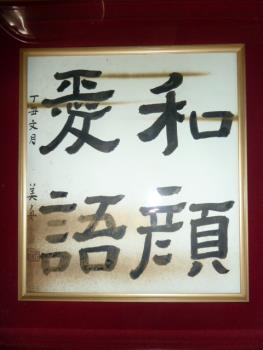 和顔
愛語
丁丑文月